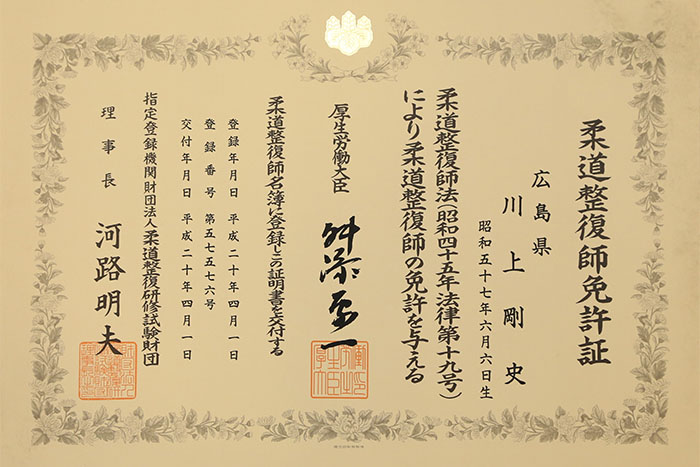 柔道整復師免許証
広島県
川上剛史
昭和五十七年六月六日生
柔道整復師法(昭和四十五年法律第十九号)
により柔道整復師の免許を与える
厚生労働大臣
舛添要一
柔道整復師名簿に登録しこの証明書を交付する
登録年月日 平成二十年四月一日
登録番号 第五七五七六号
交付年月日 平成二十年四月一日
指定登録機関財団法人柔道整復研修試験財団
理事長 河路明夫